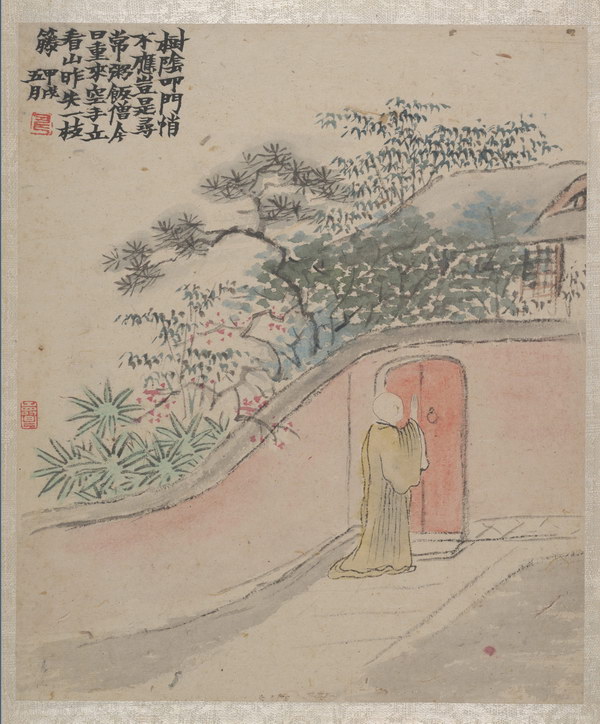 樹陰叩門悄
不應豈是尋
常粥飯僧今
日重來空手立
看山昨失一枝
籐 甲戌
五月